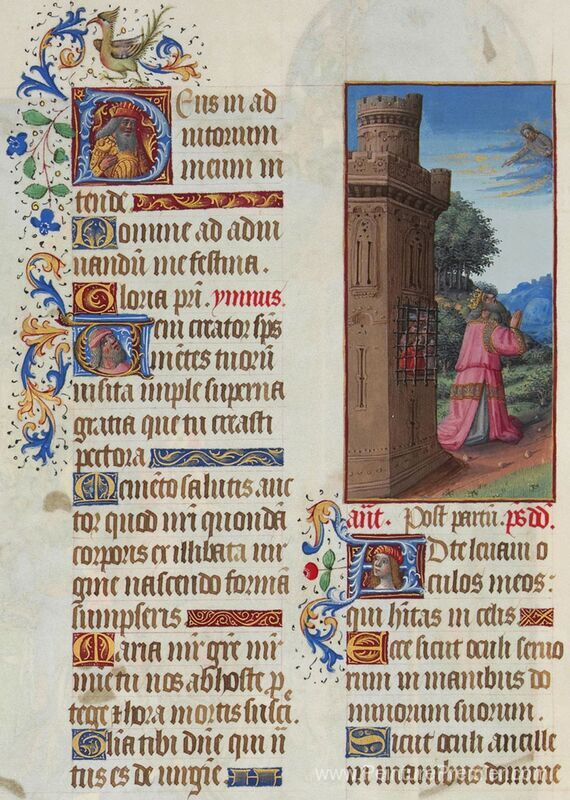 Deus in ad
iutorium
meum in
tende
Domine ad adiu
uandū me festina.
Gloria pri. ymnus.
Veni creator sps
mētes tuorū
uisita imple superna
gratia que tu creasti
pectora
Memēto salutis auc
tor quod nri quondā
corporis ex illibata uir
gine nascendo formā
sumpseris
Maria mr grē mr
mie tu nos ab hoste p
tege & hora mortis suscipe.
Glia tibi dne qui na
tus es de uirgīe
ant. Post partū. ps dd.
Ad te leuaui o
culos meos:
qui hitas in celis
Ecce sicut oculi seruo
rum in manibus do
minorum suorum.
Sicut oculi ancille
in manibus domine